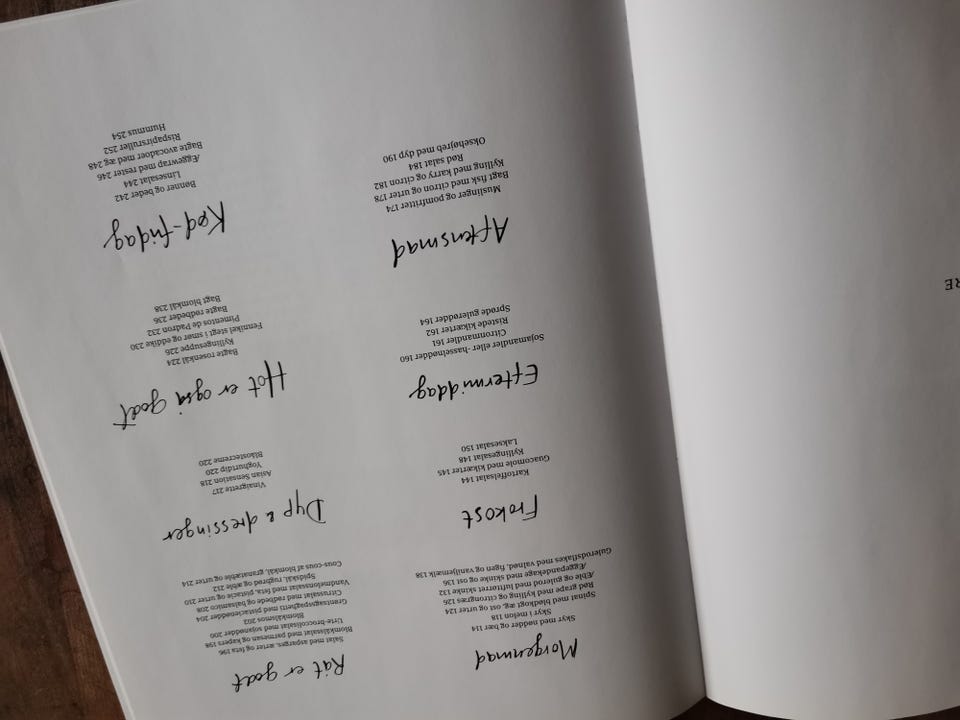 RE
Morgenmad
Skyr med nødder og bær 114
Skyr i melon 118
Spinat med blødkogt æg, ost og urter 124
Rød grape med kylling og citrongræs 126
Æble og gulerod med lufttørret skinke 132
Æggepandekage med skinke og ost 136
Gulerodsflakes med valnød, figen og vaniljemælk 138
Frokost
Kartoffelsalat 144
Guacomole med kikærter 145
Kyllingesalat 148
Laksesalat 150
Eftermiddag
Sojamandler eller -hasselnødder 160
Citronmandler 161
Ristede kikærter 162
Sprøde gulerødder 164
Aftensmad
Muslinger og pomfritter 174
Bagt fisk med citron og urter 178
Kylling med karry og citron 182
Rød salat 184
Oksehøjreb med dyp 190
Råt er godt
Salat med asparges, ærter, æg og feta 196
Blomkålssalat med parmesan og kapers 198
Urte-broccolisalat med sojanødder 200
Blomkålsmos 202
Grøntsagsspaghetti med pistacienødder 204
Citrussalat med rødbede og balsamico 208
Vandmelonssalat med feta, pistacie og urter 210
Spidskål, rugbrød og æble 212
Cous-cous af blomkål, granatæble og urter 214
Dyp & dressinger
Vinaigrette 217
Asian Sensation 218
Yoghurtdip 220
Blåostecreme 220
Hot er også godt
Bagte rosenkål 224
Kyllingesuppe 226
Fennikel stegt i smør og eddike 230
Pimentos de Padron 232
Bagte rødbeder 236
Bagt blomkål 238
Kød-fridag
Bønner og beder 242
Linsesalat 244
Æggewrap med rester 246
Bagte avocadoer med æg 248
Rispapirsruller 252
Hummus 254